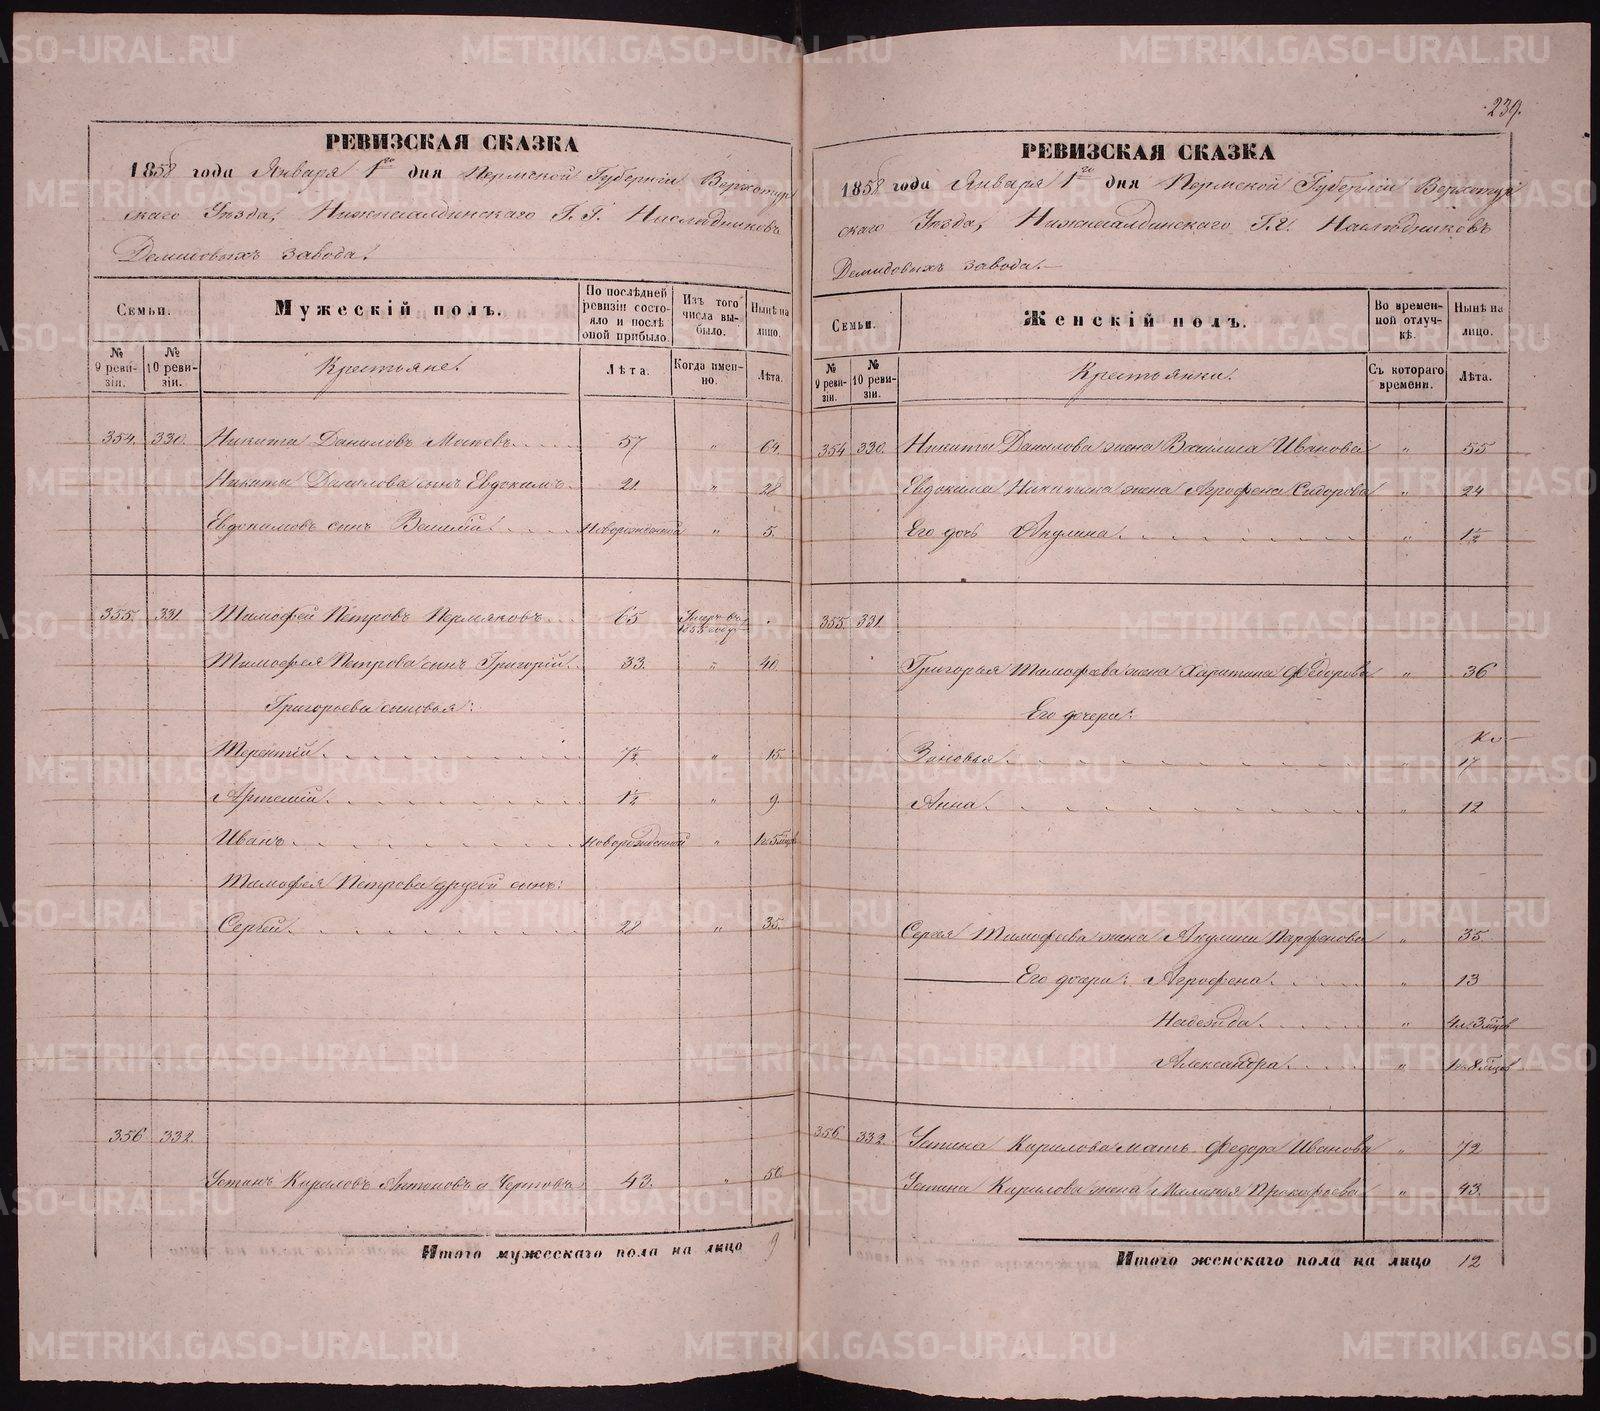 239.
РЕВИЗСКАЯ СКАЗКА
1858 года Января 1го дня Пермской Губернии Верхотур
скаго Уѣзда, Нижнесалдинскаго Г.Г. Наслѣдниковъ
Демидовыхъ завода.
Семьи.
Мужескій полъ.
По послѣдней ревизіи состояло и послѣ оной прибыло.
Изъ того числа выбыло.
Нынѣ на лицо.
№ 9 ревизіи.
№ 10 ревизіи.
Крестьяне.
Лѣта.
Когда именно.
Лѣта.
354. 330. Никита Даниловъ 57 " 64.
Никиты Данилова сынъ Евдокимъ. 21. " 28
Евдокимовъ сынъ Василій. Новорожденный " 5.
355. 331. Тимофей Петровъ Пермяковъ. 65
Тимофея Петрова сынъ Григорій. 33. " 40.
Григорьева сыновья:
Терентій. 7½ " 15.
Артемій. 1½ " 9
Иванъ. новорожденный " 1г. 5 мѣсцв
Тимофея Петрова другой сынъ:
Сергѣй. 28 " 35.
356 332.
Устинъ Кириловъ Антоновъ и Чертовъ 43. " 50.
Итого мужескаго пола на лицо 9
РЕВИЗСКАЯ СКАЗКА
1858 года Января 1го дня Пермской Губерніи Верхотур
скаго Уѣзда, Нижнесалдинскаго Г.Г. Наслѣдниковъ
Демидовыхъ завода.
Семьи.
Женскій полъ.
Во временной отлучкѣ.
Нынѣ на лицо.
№ 9 ревизіи.
№ 10 ревизіи.
Крестьянки.
Съ котораго времени.
Лѣта.
354 330. Никиты Данилова жена Василиса Иванова " 55
Евдокима Никитина жена Агрофена Сидорова " 24
Его дочь Акулина. " 1½
355. 331.
Григорья Тимофѣева жена Харитина Ѳедорова " 36
Его дочери:
Зиновья. " 17
Анна. " 12
Сергѣя Тимофѣева жена Акулина Парфенова " 35.
Его дочери: Агрофена. " 13
Надежда. " 4 г. 3 мѣсцв
Александра. " 1 г. 8 мѣсцв
356. 332. Устина Кирилова мать Федора Иванова " 72
Устина Кирилова жена Маланья Прокофьева " 43.
Итого женскаго пола на лицо 12
METRIKI.GASO-URAL.RU